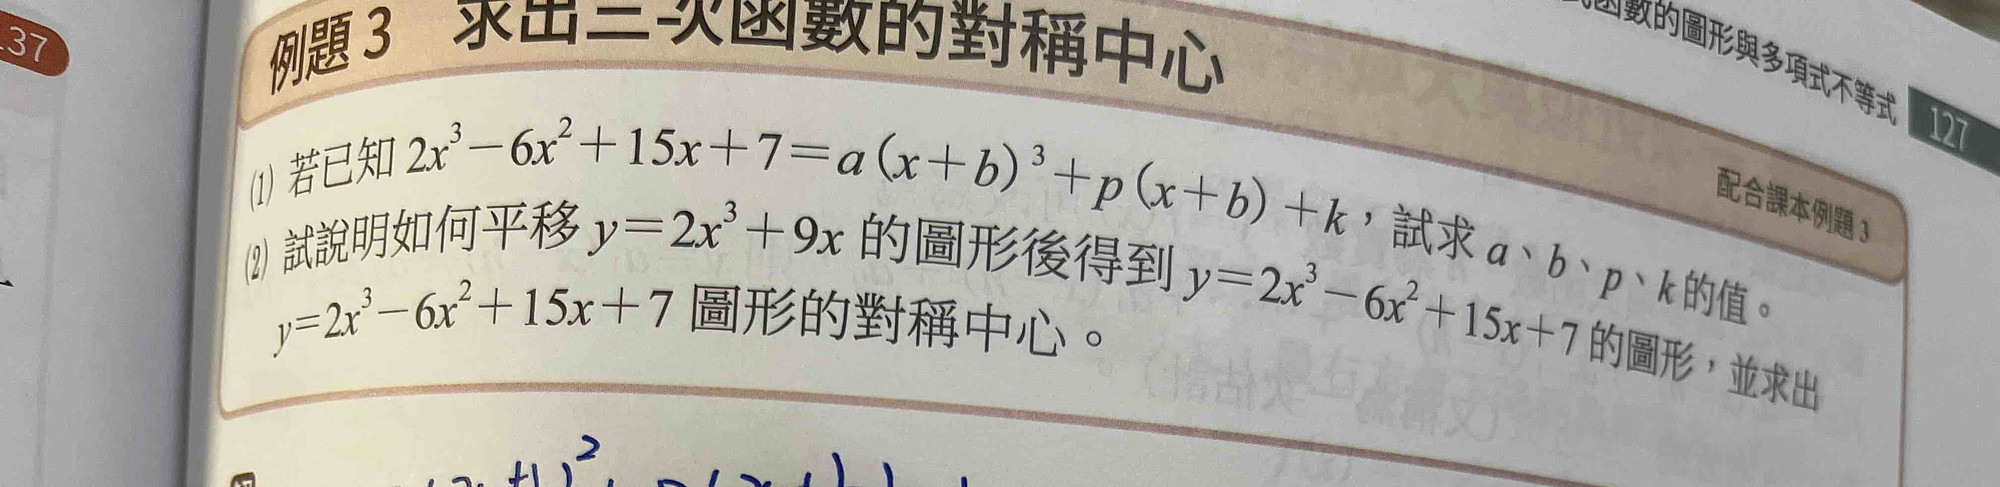 37
函數的圖形與多項式不等式 127
例題 3 求出三次函數的對稱中心
配合課本例題 3
(1) 若已知 2x³－6x²＋15x＋7＝a(x＋b)³＋p(x＋b)＋k，試求 a、b、p、k 的值。
(2) 試說明如何平移 y＝2x³＋9x 的圖形後得到 y＝2x³－6x²＋15x＋7 的圖形，並求出
y＝2x³－6x²＋15x＋7 圖形的對稱中心。